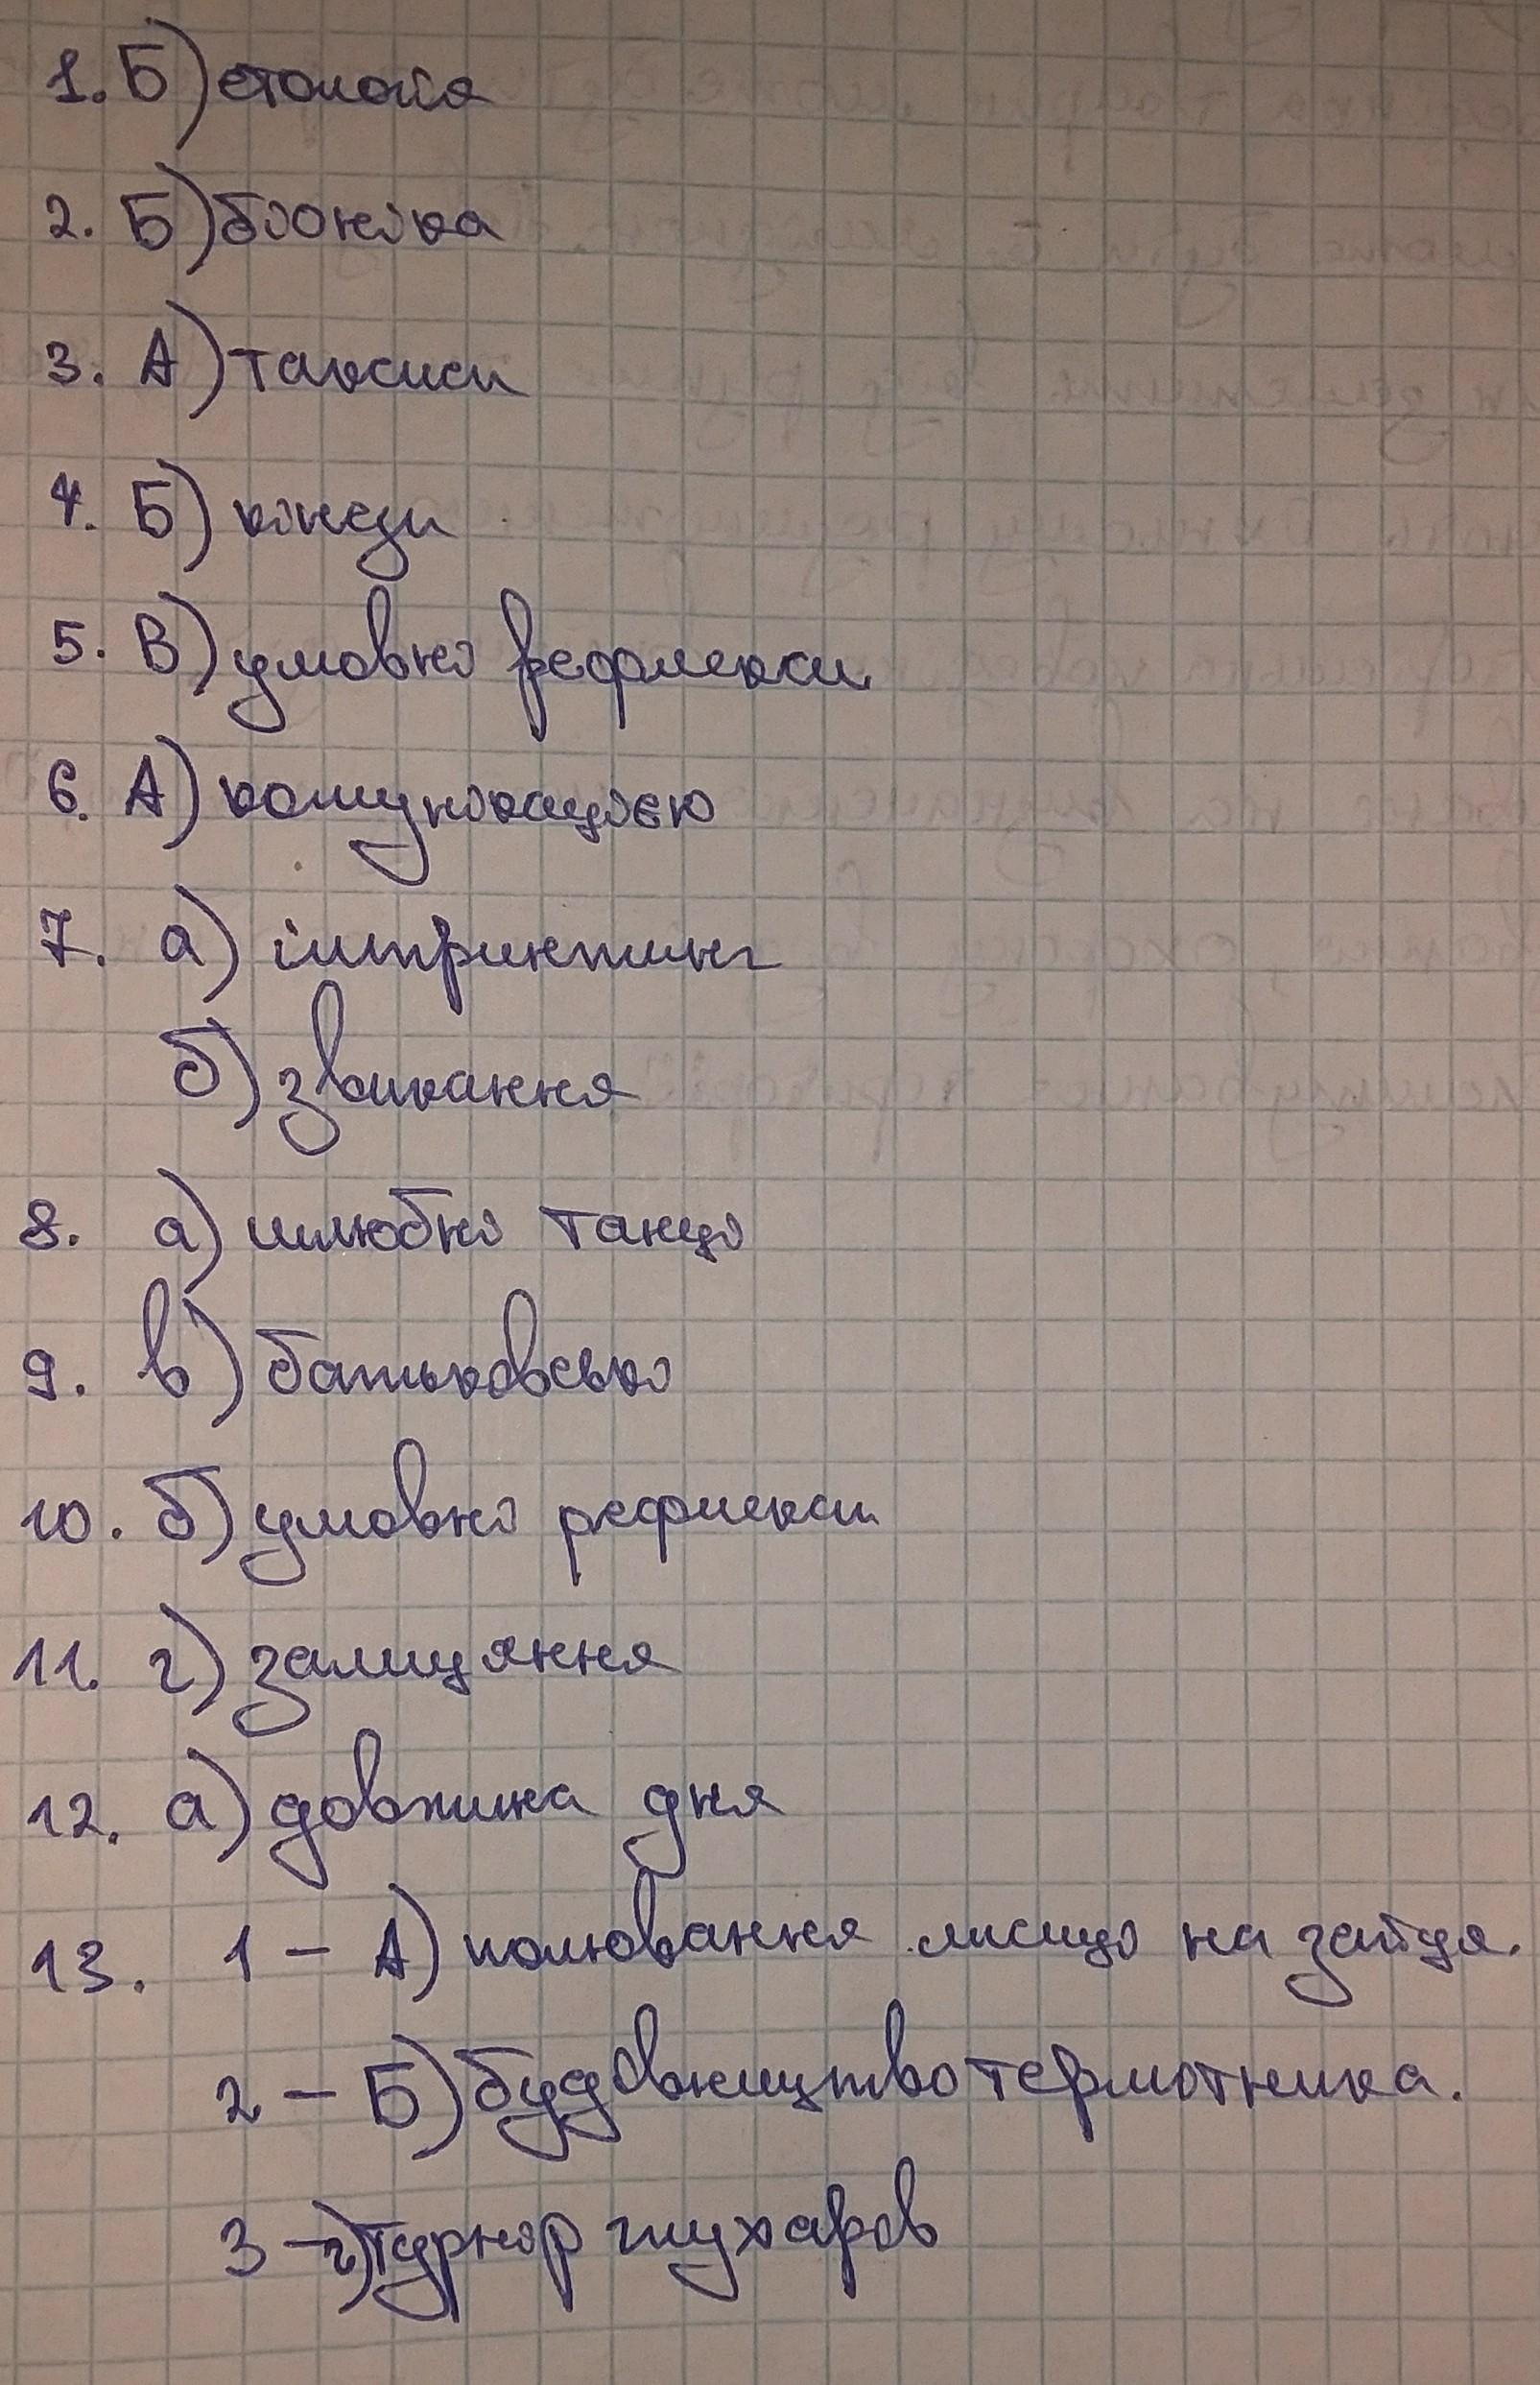 1. Б) етологія
2. Б) біоніка
3. А) таксиси
4. Б) кінези
5. В) умовні рефлекси
6. А) комунікацією
7. а) імпринтинг
б) звикання
8. а) шлюбні танці
9. в) батьківські
10. б) умовні рефлекси
11. г) залицяння
12. а) довжина дня
13. 1 – А) полювання лисиці на зайця.
2 – Б) будівництво термітника.
3 – г) турнір глухарів